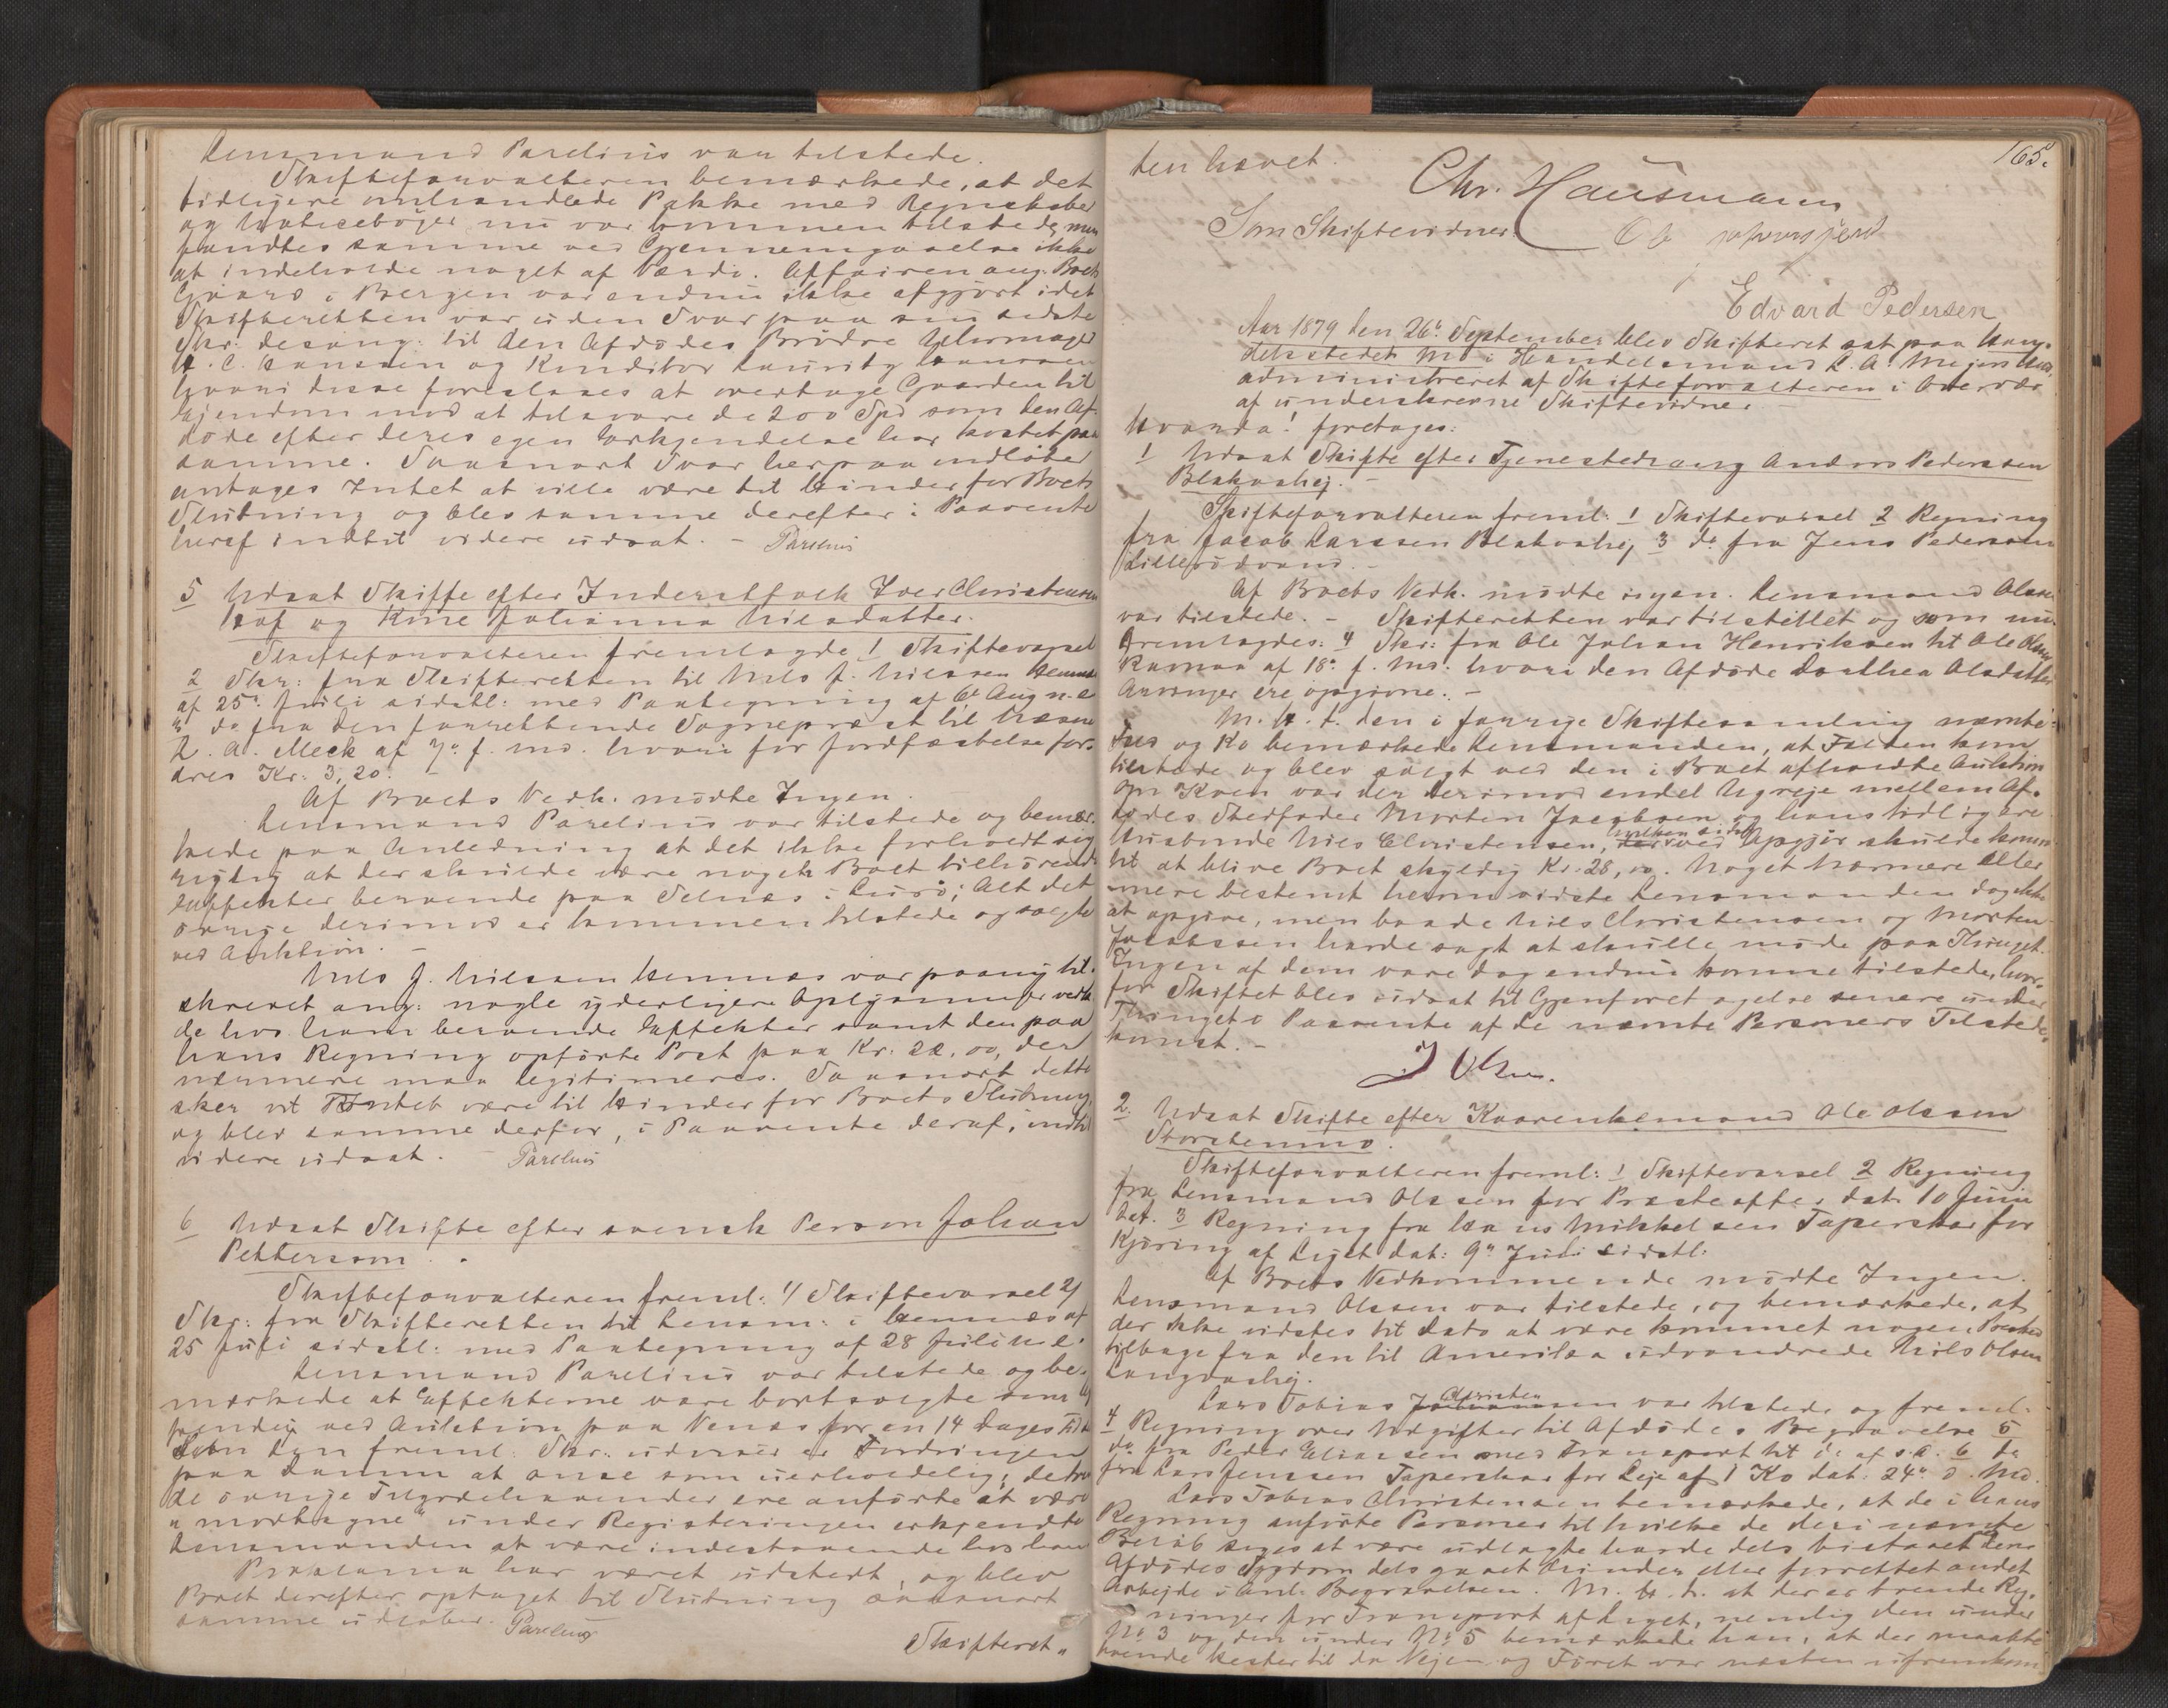 Lensmand Parelius var tilstede.
Skifteforvalteren bemærkede, at det
tidligere omhandlede Pakke med Regnskaber
og Noticebøger nu var kommen tilstede, men
fandtes samme ved Gjennemgaaelse ikke
at indeholde noget af Værdi. Affairen ang. Boets
Gaard i Bergen var endnu ikke afgjort idet
Skifteretten var uden Svar paa sin sidste
Skr. desang: til den Afdødes Brødre Uhrmager
C. Hanssen og Konditor Lauritz Hanssen
hvori disse foreslaaes at overtage Gaarden til
Ejendom mod at tilsvare de 200 Spd som den Af-
døde efter deres egen Erkjendelse har kostet paa
samme. Saasnart Svar herpaa indløber
antages Intet at ville være til Hinder for Boets
Slutning og blev samme derefter i Paavente
heraf indtil videre udsat. - Parelius
5 Udsat Skifte efter Inderstfolk Iver Christensen
og Kone Johanna Nilsdatter.
Skifteforvalteren fremlagde 1 Skiftevarsel
2 Skr: fra Skifteretten til Nils J. Nilssen Hemnæs
af 25de Juli sidstl: med Paategning af 6te Aug n. e.
do fra den forrettende Sogneprest til
L. A. Meek af 7de f. Md. hvori for Jordfæstelse for-
dres Kr: 3,20.
Af Boets Vedk. mødte Ingen.
Lensmand Parelius var tilstede og bemær-
kede paa Anledning at det ikke forholdt sig
rigtig at der skulde være noget Boet tilhørende
Effekter beroende paa Selnæs i Lurø; Alt det
øvrige derimod er kommen tilstede og solgte
ved Auktion. -
Nils J. Nilssen Hemnæs var paany til-
skrevet ang: nogle yderligere Oplysninger vedk.
de hos ham beroende Effekter samt den paa
hans Regning opførte Post paa Kr: 22,00, der
nærmere maa legitimeres. Saasnart dette
sker vil Intet være til Hinder for Boets Slutning
og blev samme derfor, i Paavente deraf, indtil
videre udsat. - Parelius
6 Udsat Skifte efter svensk Person Johan
Pettersom.
Skifteforvalteren freml: 1/ Skiftevarsel 2/
Skr: fra Skifteretten til Lensm: i Hemnæs af
25 Juli sidstl: med Paategning af 28 Juli n. e.
Lensmand Parelius var tilstede og be-
mærkede at Effekterne vare bortsolgte
ved Auktion paa Venæs for en 14 Dages Tid
siden freml: Skr: udviser er Fordringen
paa at anse som uerholdelig; de
de øvrige Tilgodehavender ere anførte at være
"modtagne" under Registeringen erkjendte
Lensmanden at være indestaaende hos ham
Proclama har været udstedt, og blev
Boet derefter optaget til Slutning saasnart
samme udløber. Parelius
Skifteret-
165.
ten hævet.
Chr. Hausmann
Som Skiftevidner
Edvard Pedersen
Aar 1879 den 26de September blev Skifteret sat paa Han-
delsstedet Mo i Handelsmand L. A. Meyers Huus,
administreret af Skifteforvalteren i Overvær
af underskrevne Skiftevidner
Hvorda! foretages:
1 Udsat Skifte efter Tjenestedreng Anders Pederssen
Blakvahej. -
Skifteforvalteren freml: 1 Skiftevarsel 2 Regning
fra Jacob Larssen Blakvahej 3 do fra Jens Pederssen
Af Boets Vedk. mødte ingen. Lensmand Olssen
var tilstede. - Skifteretten var tilstillet og som nu
fremlagdes: 4 Skr: fra Ole Johan Henriksen til Ole
af 18de f. Md. hvori den Afdøde Dorthea Olsdatters
Arvinger ere opgivne. -
M. H. t. den i forrige Skiftesamling nævnte
og Ko bemærkede Lensmanden, at kom
tilstede og blev solgt ved den i Boet afholdte Auktion
Om Koen var der derimod endel Ugreje mellem Af-
dødes Stedfader Morten Jacobsen og hans tidligere
Husbonde Nils Christensen, hvilken sidste ved Opgjør skulde komme
til at blive Boet skyldig Kr: 28,00. Noget nærmere eller
mere bestemt herom vidste Lensmanden dog ikke
at opgive, men baade Nils Christensen og Morten
Jacobssen havde sagt at skulle møde paa Thinget.
Ingen af dem vare dog endnu komne tilstede, hvor-
for Skiftet blev udsat til Gjenforetagelse senere under
Thinget i Paavente af de nævnte Personers Tilstede-
komst. -
J Olsen.
2. Udsat Skifte efter Kaarenhemand Ole Olssen
Storstenmo.
Skifteforvalteren freml: 1 Skiftevarsel 2 Regning
fra Lensmand Olssen for Præsteofter dat: 10 Juni
3 Regning fra Mikkelsen Taperskar for
Kjøring af Liget dat: 9de Juli sidstl:
Af Boets Vedkommende mødte Ingen.
Lensmand Olssen var tilstede, og bemærkede, at
der ikke vidstes til dato at være kommet nogen Besked
tilbage fra den til Amerika udvandrede Nils Olsen
Langvashej.
Lars Tobias Christensen var tilstede og freml:
4 Regning over Udgifter til Afdødes Begravelse 5
do fra Peder Eliassen med Transport til do af s. d. 6 do
fra Lars Jenssen Taperskar for Leje af 1 Ko dat: 24de d. Md.
Lars Tobias Christensen bemærkede, at de i hans
Regning anførte Personer til hvilke de deri nævnte
Beløb siges at være udlagte havde dels bistaaet den
Afdødes Sygdom dels gaaet Ærinder eller forrettet andet
Arbejde i Anl. Begravelsen. M. H. t. at der er trende Reg-
ninger for Transport af Liget, nemlig den under
No 3 og den under No 5 bemærkede han, at der maatte
trende Hester til da Vejen og Føret var næsten ufremkom